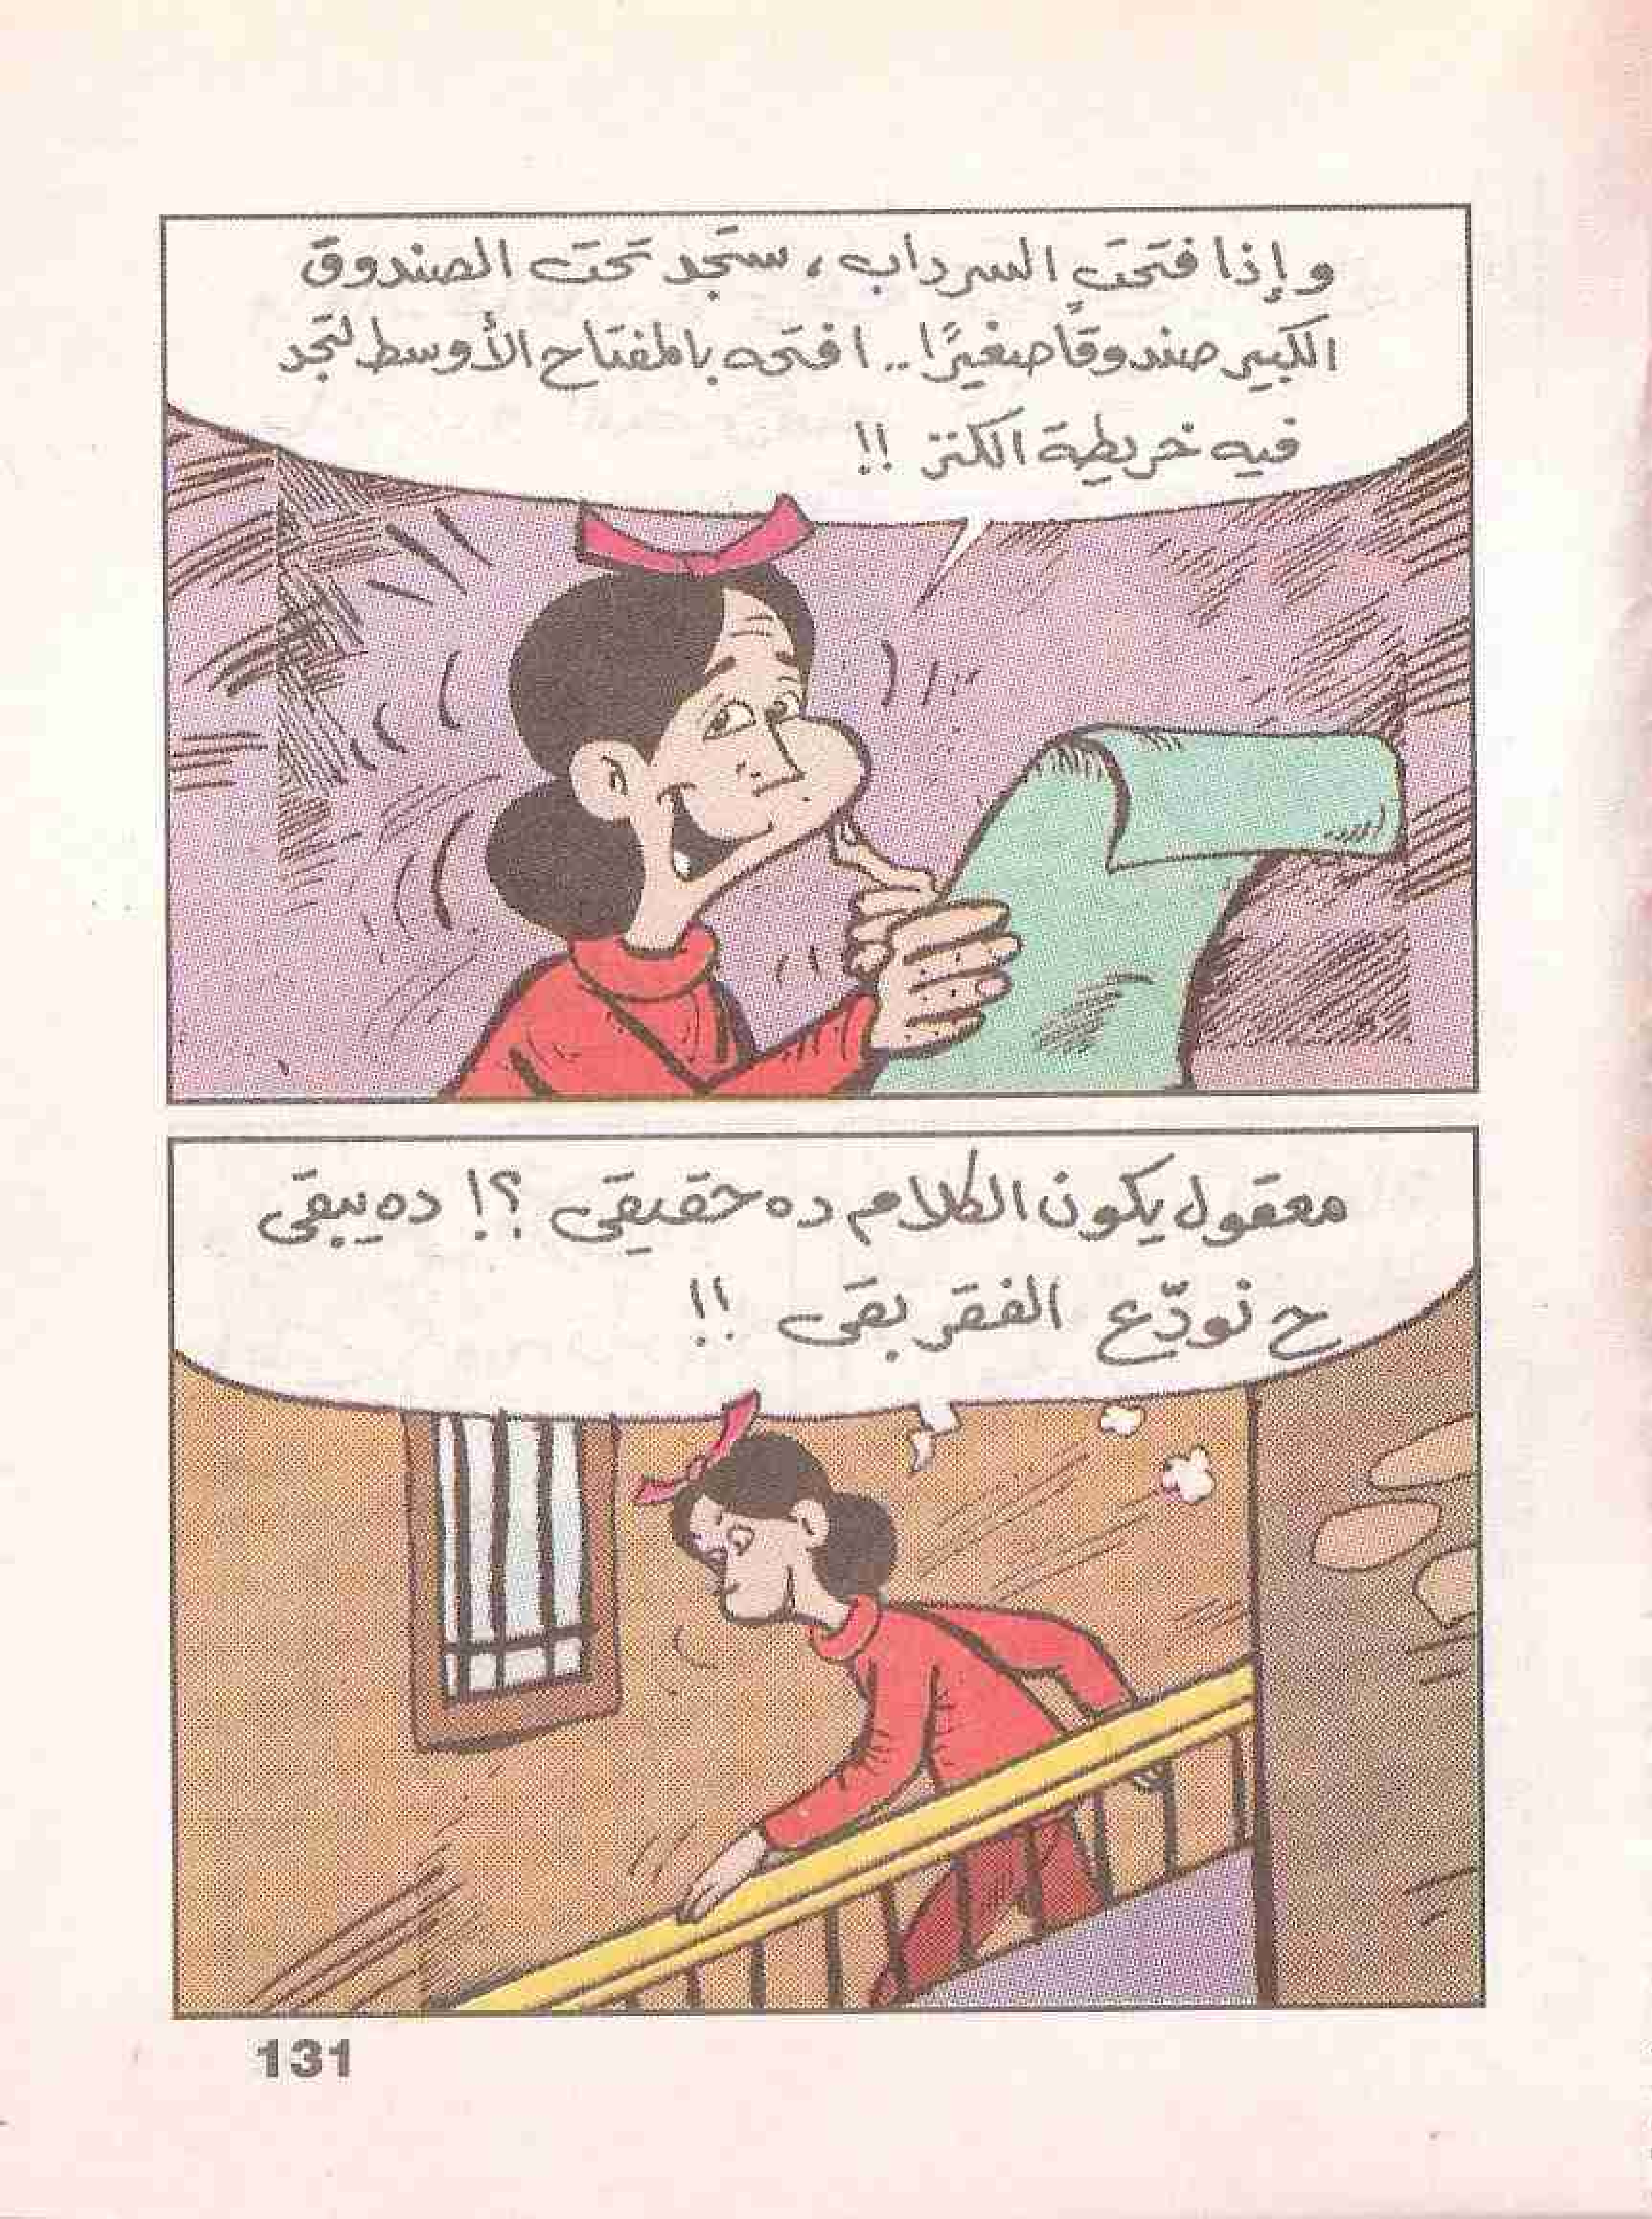 وإذا فتحت السرداب، ستجد تحت الصندوق
الكبير صندوقًا صغيرًا.. افتحه بالمفتاح الأوسط لتجد
فيه خريطة الكنز !!
معقول يكون الكلام ده حقيقى ؟! ده يبقى
ح نودّع الفقر بقى !!
131